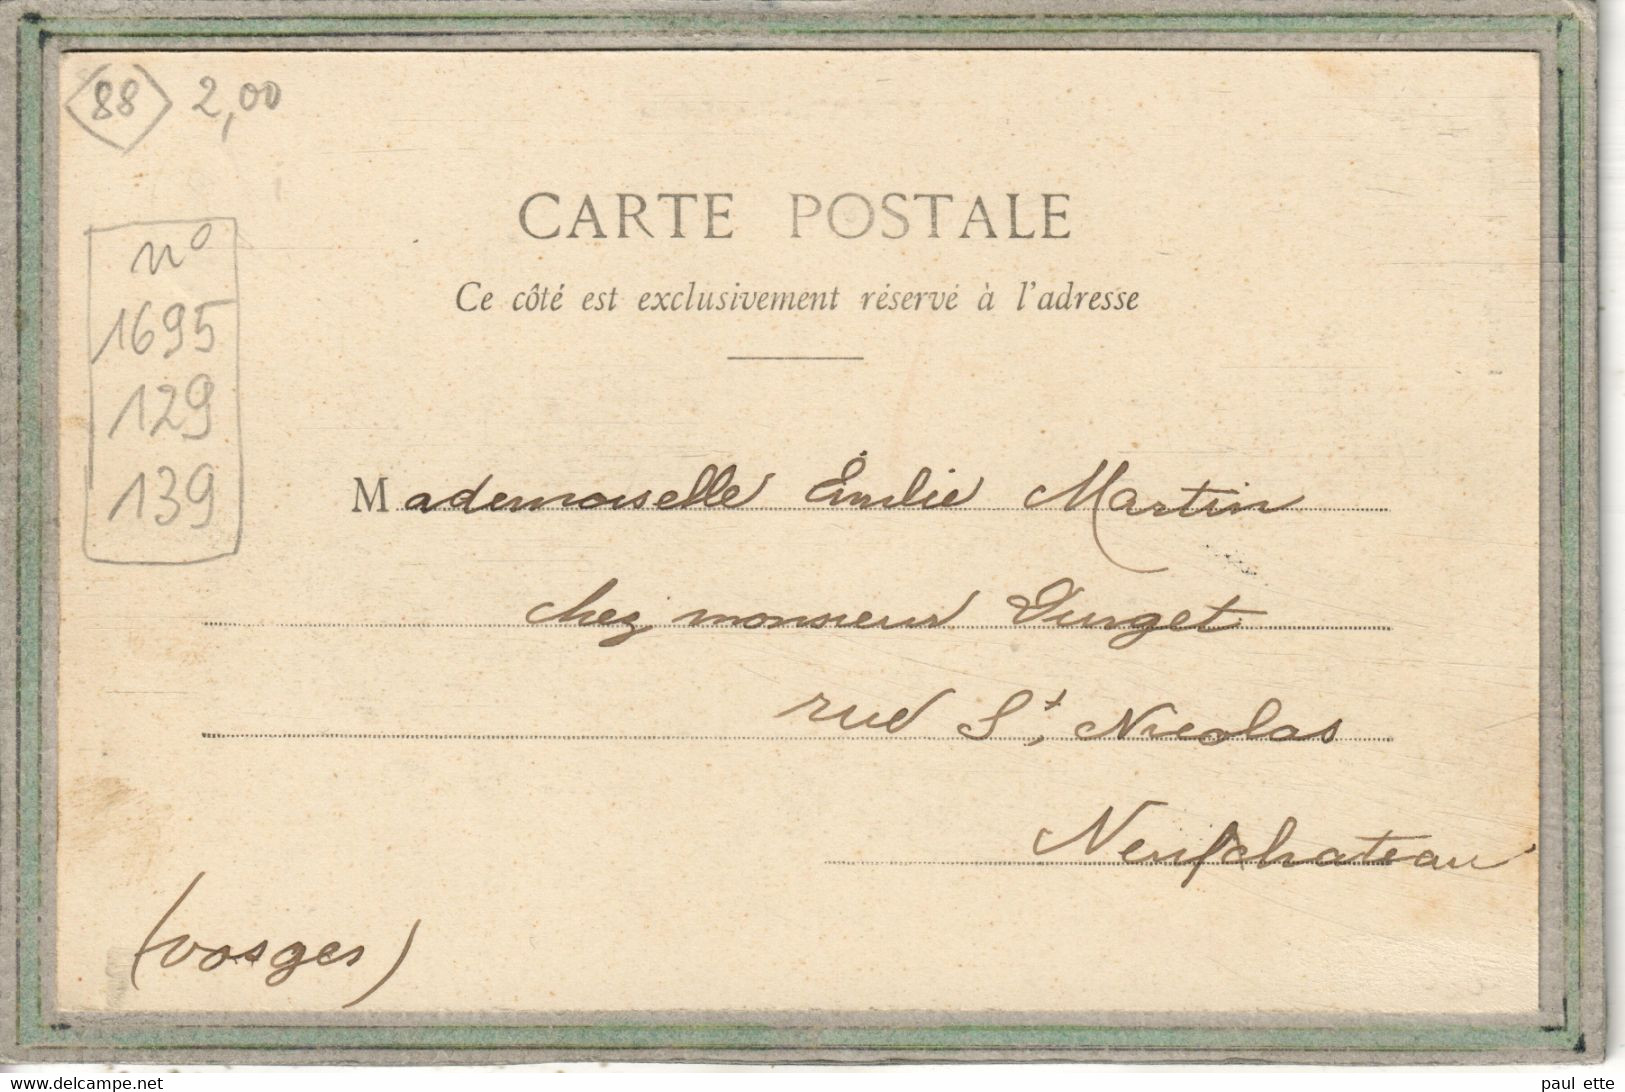 (88) 2,00
CARTE POSTALE
Ce côté est exclusivement réservé à l'adresse
n°
1695
129
139
Mademoiselle Émilie Martin
chez monsieur Durget
rue St, Nicolas
Neufchateau
(vosges)
www.delcampe.net
paul ette